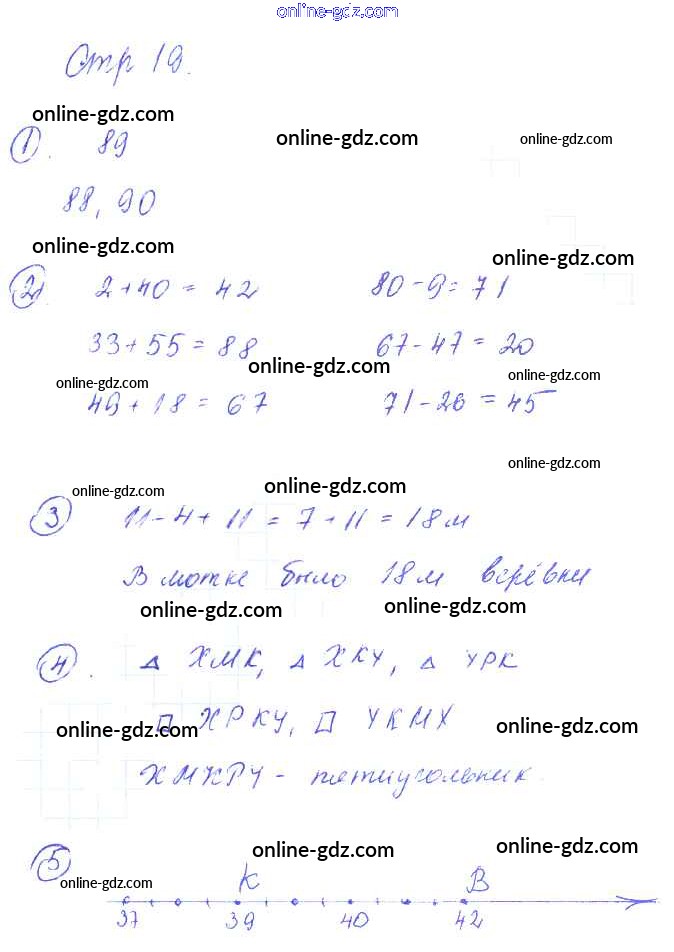 online-gdz.com
Стр 19.
online-gdz.com
1. 89
online-gdz.com
online-gdz.com
88, 90
online-gdz.com
online-gdz.com
2 2+40 = 42 80-9=71
33+55=88 67-47=20
online-gdz.com
online-gdz.com
online-gdz.com
49+18=67 71-26=45
online-gdz.com
online-gdz.com
online-gdz.com
3 11-4+11=7+11=18м
В мотке было 18м верёвки
online-gdz.com
online-gdz.com
4. △ ХМК, △ ХКУ, △ УРК
□ ХРКУ, □ УКМХ
online-gdz.com
online-gdz.com
ХМКРУ - пятиугольник.
5
online-gdz.com
online-gdz.com
online-gdz.com
К В
37 39 40 42